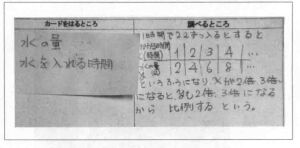 カードをはるところ
水の量
水を入れる時間
調べるところ
1時間で2cmずつ入るとすると
(時間) 1 2 3 4 …
水の量 2 4 6 8 …
というふうになり、xが2倍、3倍…
になると、yも2倍、3倍になる
から 比例する という。